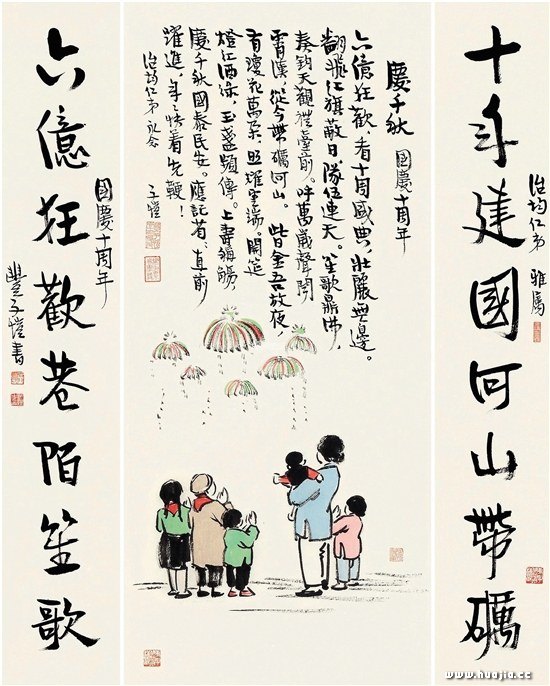 十年建國河山帶礪
治均仁弟 雅屬
慶千秋 國慶十周年
六億狂歡，看十周盛典，壯麗無邊。
翻飛紅旗蔽日，隊伍連天。笙歌鼎沸，
奏鈞天觀禮臺前。呼萬歲聲聞
霄漢，從今帶礪河山。 此日金吾放夜，
有瓊花萬朵，照耀雲端。開筵
燈紅酒綠，玉盞頻傳。上壽稱觴，
慶千秋國泰民安。應 直前
躍進，年年快着先鞭！
治均仁弟永念
子愷
六億狂歡巷陌笙歌
國慶十周年
豐子愷書
www.huajia.cc